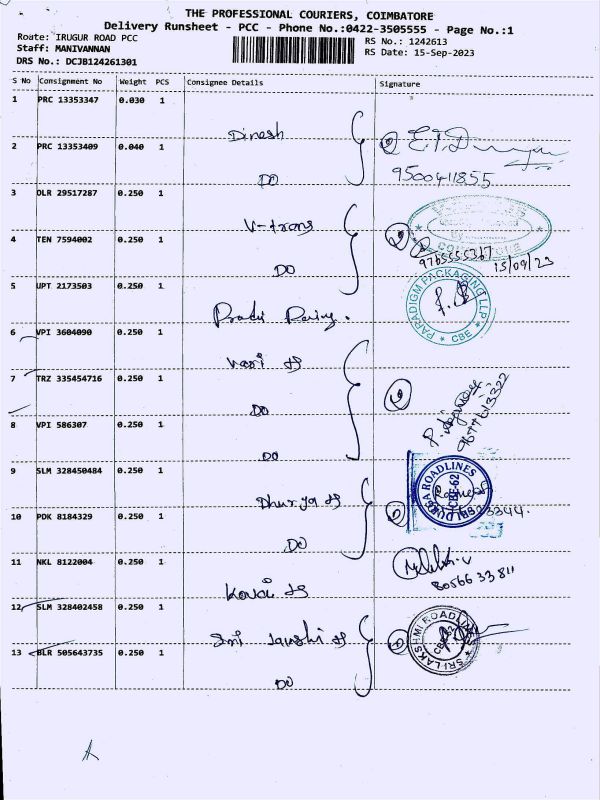 THE PROFESSIONAL COURIERS, COIMBATORE
Delivery Runsheet - PCC - Phone No.:0422-3505555 - Page No.:1
Route: IRUGUR ROAD PCC
RS No.: 1242613
Staff: MANIVANNAN
RS Date: 15-Sep-2023
DRS No.: DCJB124261301
S No Consignment No Weight PCS Consignee Details Signature
1 PRC 13353347 0.030 1
Dinesh
2 PRC 13353409 0.040 1
DO
9500411855
3 DLR 29517287 0.250 1
V-trans
4 TEN 7594002 0.250 1
DO
9765555367
15/09/23
5 UPT 2173503 0.250 1
PARADIGM PACKAGING LLP
* CBE *
6 VPI 3604090 0.250 1
7 TRZ 335454716 0.250 1
DO
8 VPI 586307 0.250 1
DO
9 SLM 328450484 0.250 1
DURGA ROADLINES
CBE-62
10 PDK 8184329 0.250 1
DO
11 NKL 8122004 0.250 1
Kovai
80566 33811
12 SLM 328402458 0.250 1
Sri
SRI LAKSHMI ROADLINES
13 BLR 505643735 0.250 1
DO